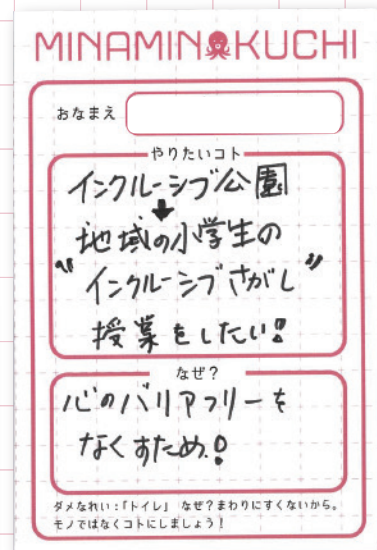 MINAMINOKUCHI
おなまえ
やりたいコト
インクルーシブ公園
↓
地域の小学生の
"インクルーシブさがし"
授業をしたい!!
なぜ?
心のバリアフリーを
なくすため!
ダメなれい:「トイレ」 なぜ?まわりにすくないから。
モノではなくコトにしましょう!